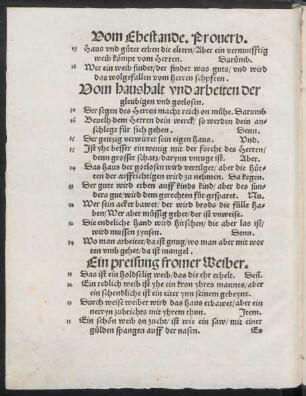 Vom Ehestande. Prouerb.
19 Haus vnd güter erben die eltern/Aber ein vernunfftig
weib kömpt vom Herren. Darümb.
18 Wer ein weib findet/der findet was guts/vnd wird
das wolgefallen vom Herren schpffen.
Vom haushalt vnd arbeiten der
gleubigen vnd gotlosen.
10 Der segen des Herren macht reich on mühe. Darumb
16 Beuelh dem Herren dein werck/so werden dein an-
schlege für sich gehen. Denn.
15 Der geitzig verwirret sein eigen haus. Vnd.
15 Ist yhe besser ein wenig mit der forcht des Herren/
denn grosser schatz/darynn vnruge ist. Aber.
14 Das Haus der gotlosen wird vertilget/aber die hüt-
ten der auffrichtigen wird zu nehmen. Da kegen.
13 Der gute wird erben auff kinds kind/aber des sun-
ders gut/wird dem gerechten für gesparet. Nu.
12 Wer sein acker bawet/der wird brods die fülle ha-
ben/Wer aber müssig gehet/der ist vnweise.
12 Die endeliche Hand wird hirschen/die aber las ist/
wird mussen zynsen. Denn.
14 Wo man arbeitet/da ist gnug/wo man aber mit wor
ten vmb gehet/da ist mangel.
Ein preisung fromer Weiber.
11 Das ist ein holdselig weib/das die ehr erhelt. Deñ.
12 Ein redlich weib ist yhe ein kron yhres mannes/aber
ein schendliche ist ein eiter ynn seinem gebeyne.
14 Durch weise weiber wird das Haus erbawet/aber ein
nerryn zubrichts mit yhrem thun. Item.
11 Ein schön weib on zucht/ist wie ein saw/mit einer
gülden spangen auff der nasen. Es